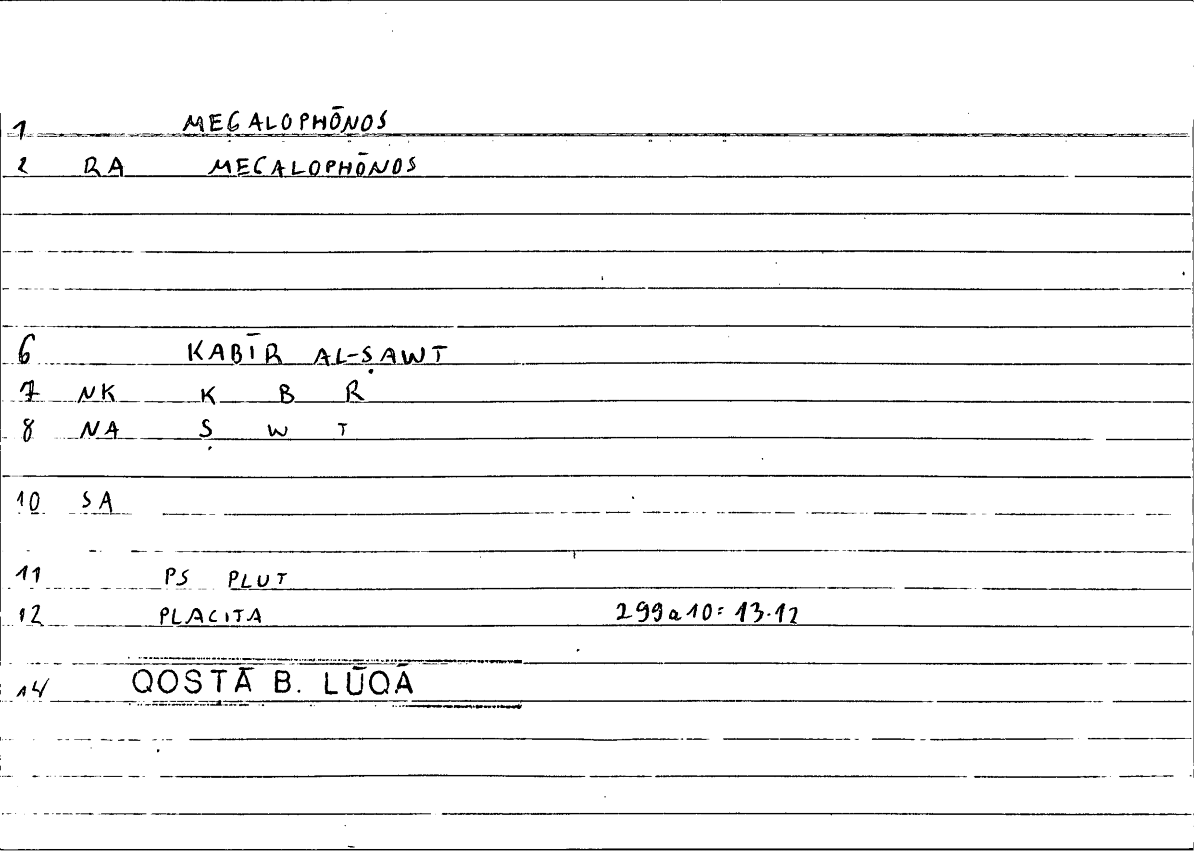 1 MEGALOPHŌNOS
2 RA MEGALOPHŌNOS
6 KABĪR AL-ṢAWT
7 NK K B R
8 NA Ṣ W T
10 SA
11 PS PLUT
12 PLACITA 299a10: 13.12
14 QOSTĀ B. LŪQĀ